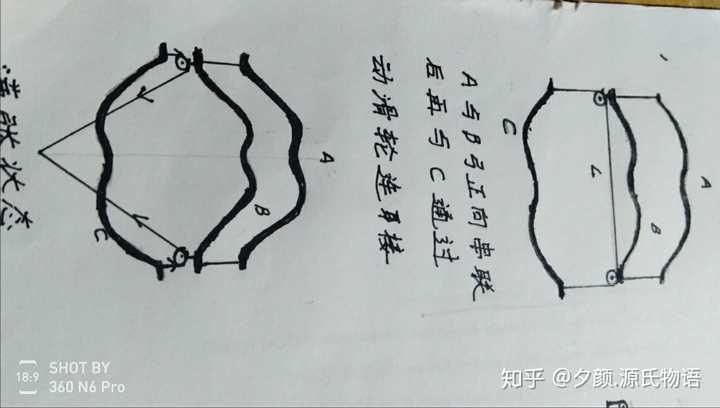 A
B
L
C
A与B弓正向串联
后再与C通过
动滑轮连接
A
B
C
状态
SHOT BY
360 N6 Pro
18:9
知乎 @夕颜.源氏物语